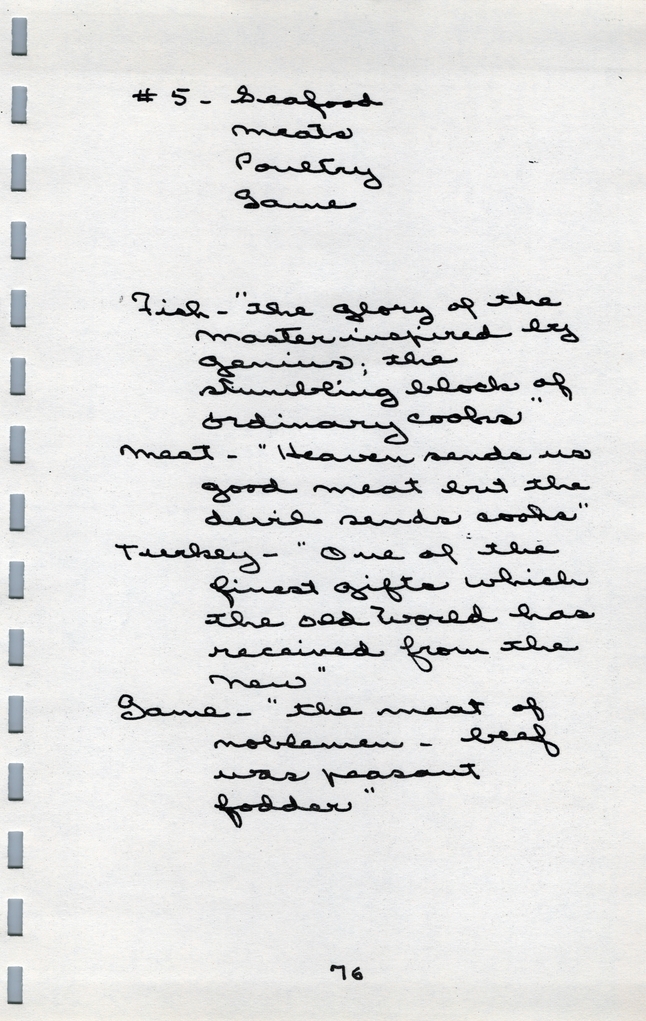 # 5 - Seafood
Meats
Poultry
Game
Fish - "the glory of the
master inspired by
genius; the
stumbling block of
ordinary cooks"
Meat - "Heaven sends us
good meat but the
devil sends cooks"
Turkey - "One of the
finest gifts which
the old World has
received from the
New"
Game - "the meat of
noblemen - beef
was peasant
fodder"
76